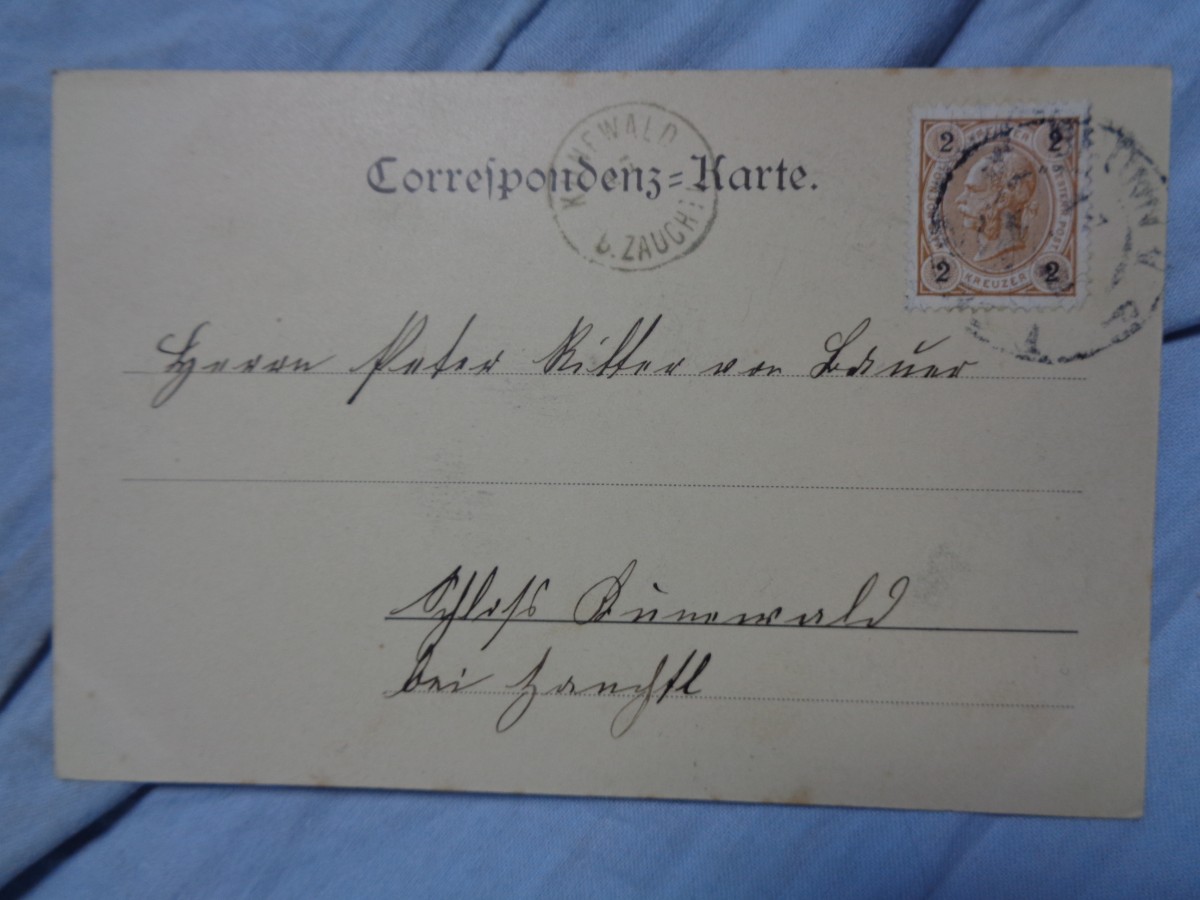 Correspondenz=Karte.
KUNEWALD
b. ZAUCHTL
2 2
2 2
KREUZER
BRÜNN
Herrn Peter Ritter von Bauer
Schloss Kunewald
bei Zauchtl